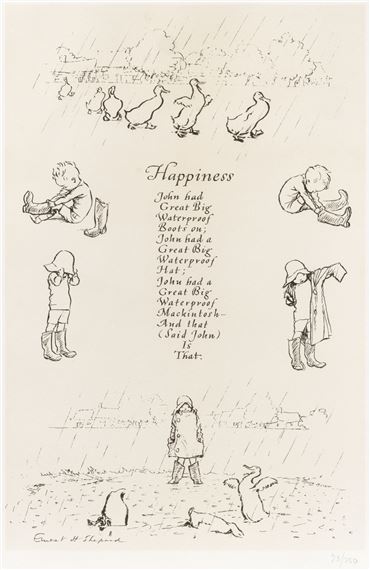 Happiness
John had
Great Big
Waterproof
Boots on;
John had a
Great Big
Waterproof
Hat;
John had a
Great Big
Waterproof
Mackintosh—
And that
(Said John)
Is
That.
Ernest H Shepard